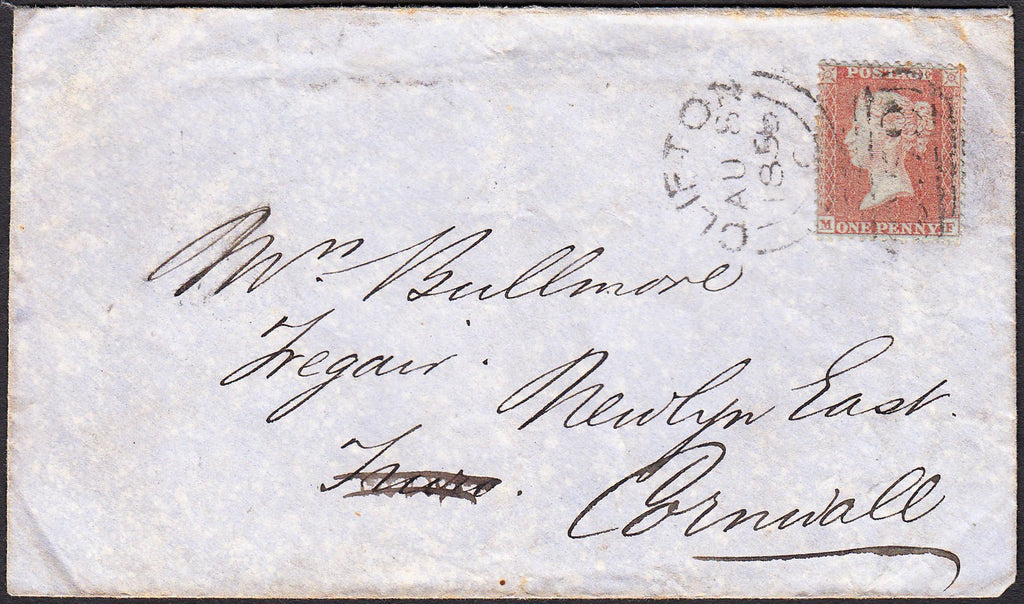 CLIFTON
AU 8
185
POSTAGE
M ONE PENNY F
Mrs. Bullmore
Tregair.
Newlyn East.
Truro.
Cornwall